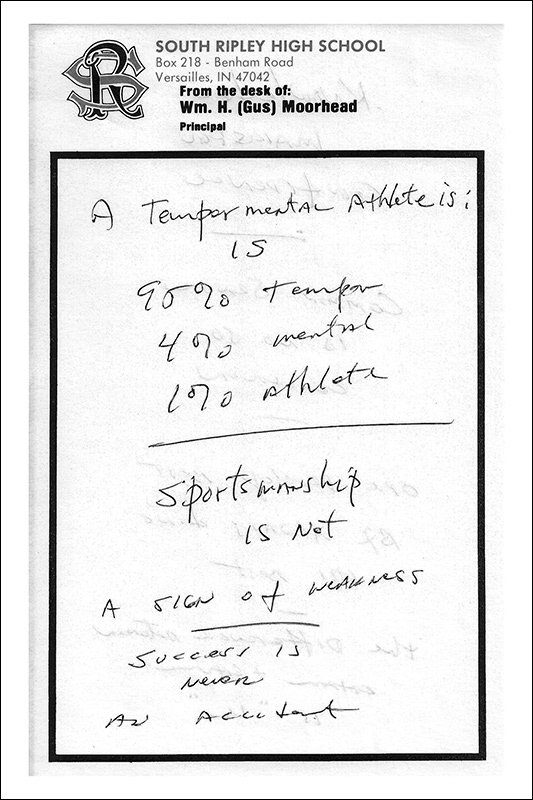 SOUTH RIPLEY HIGH SCHOOL
Box 218 - Benham Road
Versailles, IN 47042
From the desk of:
Wm. H. (Gus) Moorhead
Principal
A Tempor mental Athlete is:
IS
95% tempor
4% mental
1% Athlete
Sportsmanship
IS Not
A SIGN of WEAKNESS
SUCCESS IS
NEVER
AN ACCIdent